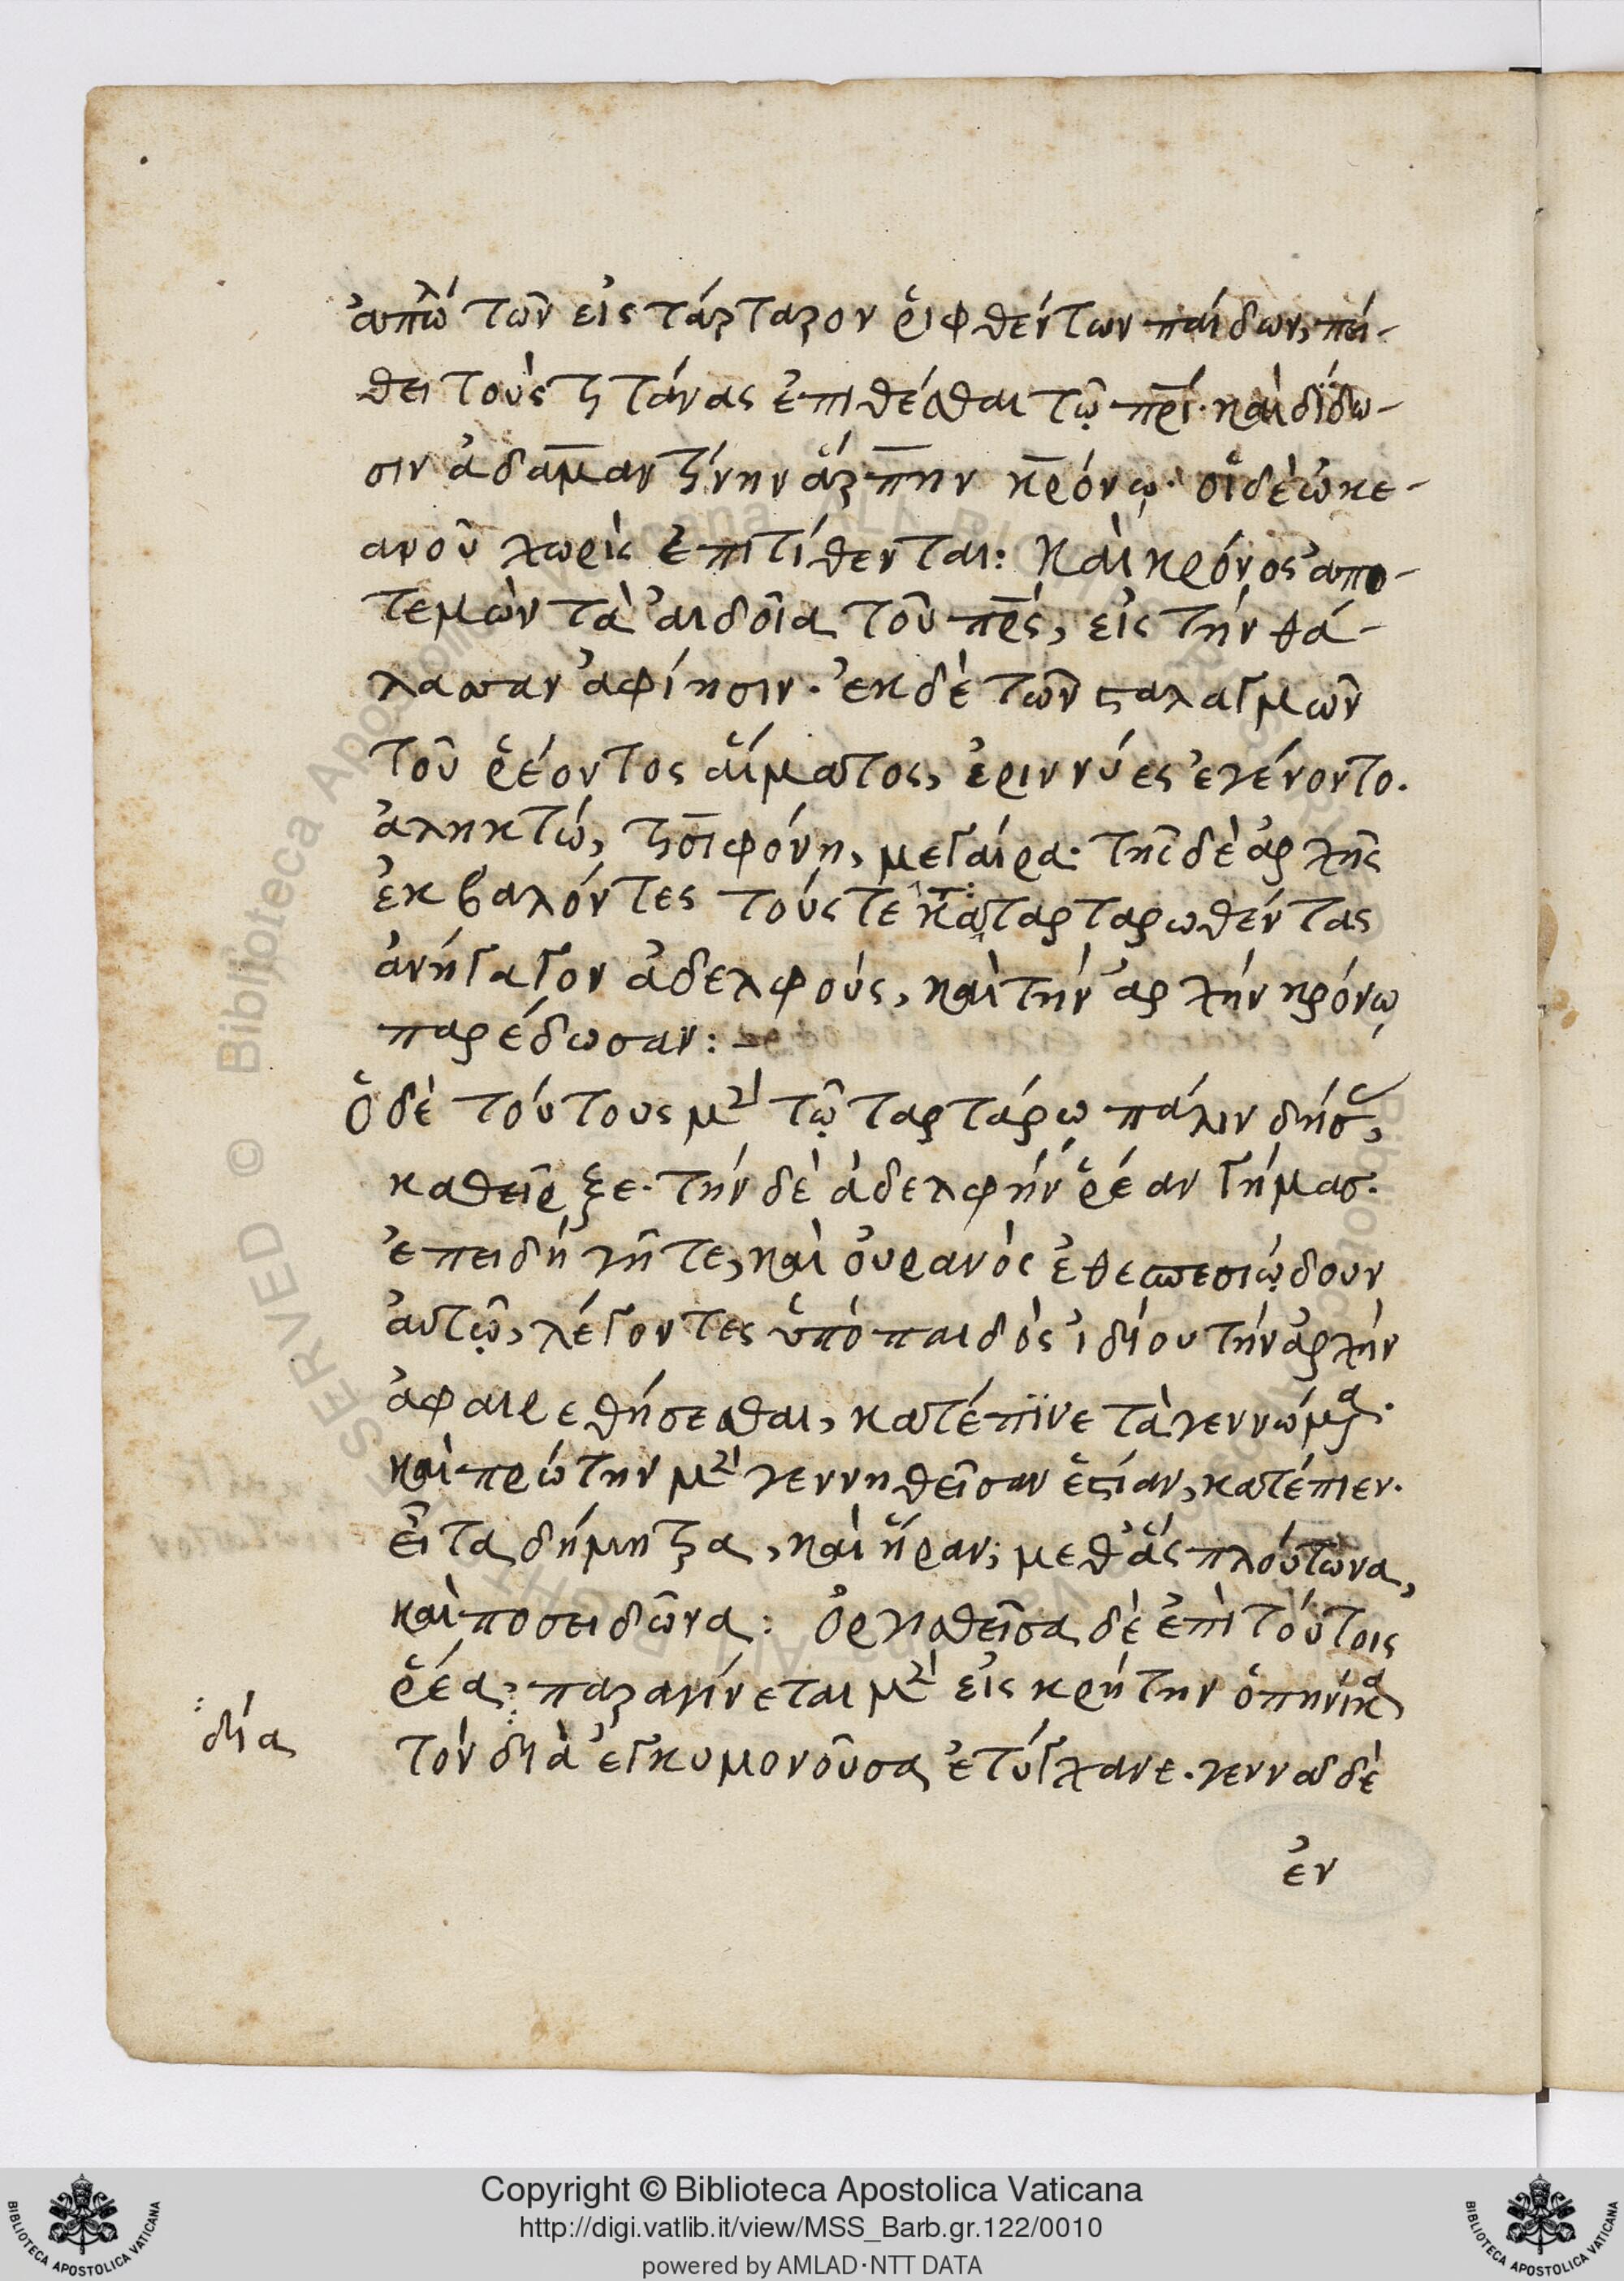 ἀπω^λ τῶν εἰς τάρταρον ῥιφθέντων παίδων, πεί-
θει τοὺς τιτάνας ἐπιθέσθαι τῷ πρι̅· καὶ δίδω-
σιν ἀδαμαντίνην ἅρπην κρόνῳ· οἱ δὲ ὠκε-
ανοῦ χωρὶς ἐπιτίθενται: καὶ κρόνος ἀπο-
τεμὼν τὰ αἰδοῖα τοῦ πρς̅, εἰς τὴν θά-
λασσαν ἀφίησιν· ἐκ δὲ τῶν σταλαγμῶν
τοῦ ῥέοντος αἵματος, ἐριννύες ἐγένοντο.
ἀληκτώ, τισιφόνη, μεγαίρα· τῆς δὲ ἀρχῆς
ἐκβαλόντες τούς τε καταταρταρωθέντας
ἀνήγαγον ἀδελφούς, καὶ τὴν ἀρχὴν κρόνῳ
παρέδωσαν: –
ὁ δὲ τούτους μὲν τῷ ταρτάρῳ πάλιν δήσ,
καθεῖρξε· τὴν δὲ ἀδελφὴν ῥέαν γήμασ·
ἐπειδὴ γῆ τε, καὶ οὐρανὸς ἐθεσπεσιῴδουν
αὐτῷ, λέγοντες ὑπὸ παιδὸς ἰδίου τὴν ἀρχὴν
ἀφαιρεθήσεσθαι, κατέπινε τὰ γεννώμ^α·
καὶ πρώτην μὲν γεννηθεῖσαν ἑστίαν, κατέπιεν.
εἶτα δήμητρα, καὶ ἥραν, μεθ' ἃς πλούτωνα,
καὶ ποσειδῶνα: ὀργισθεῖσα δὲ ἐπὶ τούτοις
ῥέα, παραγίνεται μὲν εἰς κρήτην ὁπηνίκα
τὸν διὰ ἐγκυμονοῦσα ἐτύγχανε. γεννᾶ δὲ
δία
ἐν
Copyright © Biblioteca Apostolica Vaticana
http://digi.vatlib.it/view/MSS_Barb.gr.122/0010
powered by AMLAD·NTT DATA
BIBLIOTECA APOSTOLICA VATICANA
BIBLIOTECA APOSTOLICA VATICANA